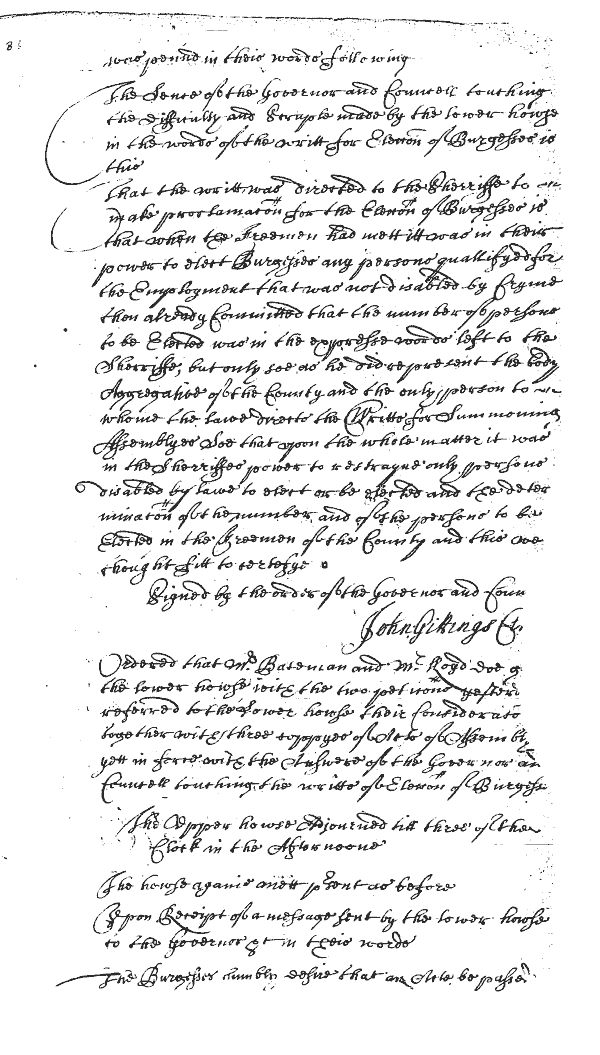 8
was penned in theis words following
The Sence of the Governor and Councell touching
the difficulty and Scruple made by the lower howse
in the words of the writt for Eleccon of Burgesses is
this
That the writt was directed to the Sherriffe to
make proclamacon for the Eleccon of Burgesses is
that when the Freemen had mett itt was in their
power to elect Burgesses any persons quallifyed for
the Employment that was not disabled by Cryme
then already Committed that the number of persons
to be Elected was in the expresse words left to the
Sherriffe, but only soe as he did represent the body
Aggregative of the County and the only person to
whome the lawe directs the Writts for Summoning
Assemblyes Soe that upon the whole matter it was
in the Sherriffes power to restrayne only persons
disabled by lawe to elect or be elected and the deter
minacon of the number and of the persons to be
Elected in the Freemen of the County and this we
thought fitt to certefye
Signed by the order of the Governor and Coun
John Gittings Clr
Ordered that Mr Bateman and Mr Lloyd doe g
the lower howse with the two peticons yesterd
referred to the Lower howse their Consideracio
together with three coppyes of Acts of Assembly
yett in force with the Answere of the Governor an
Councell touching the writts of Eleccon of Burgess
The Upper howse Adjourned till three of the
Clock in the Afternoone
The howse againe mett psent as before
Upon Receipt of a message sent by the lower howse
to the Governor &c in theis words
The Burgesses humbly desire that an Acte be passed